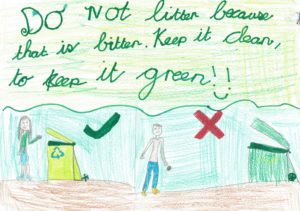 Do Not litter because
that is bitter. Keep it clean,
to keep it green!!